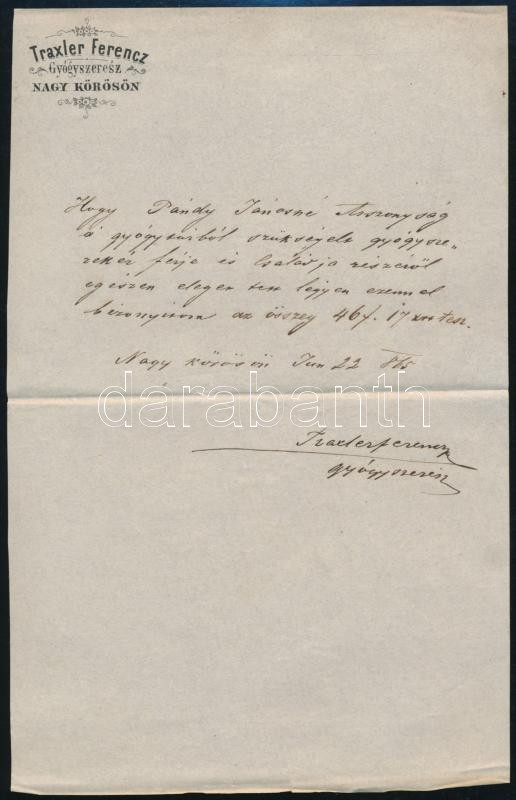 Traxler Ferencz
Gyógyszerész
NAGY KÖRÖSÖN
Hogy Pándy Jánosné Asszonyság
a gyógytárból szükségelt gyógysze-
rekér férje és Családja részéről
egészen eleget tett légyen ezennel
bizonyitom az összeg 46f. 17 xrt tesz.
Nagy körösön Jun 22 875
darabanth
Traxler ferencz
gyógyszerész